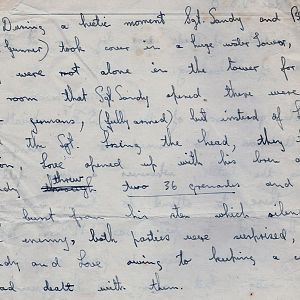 During a hectic moment Sgt. Sandy and P
Gunner) took cover in a huge water tower,
were not alone in the tower for
room that Sgt. Sandy opened there were
germans, (fully armed) but instead of
the Sgt. losing the head, they t
Love opened up with his bren a
threw two 36 grenades and
burst from his sten which silen
enemy, both parties were surprised,
dy and Love owing to keeping a c
ad dealt with them.